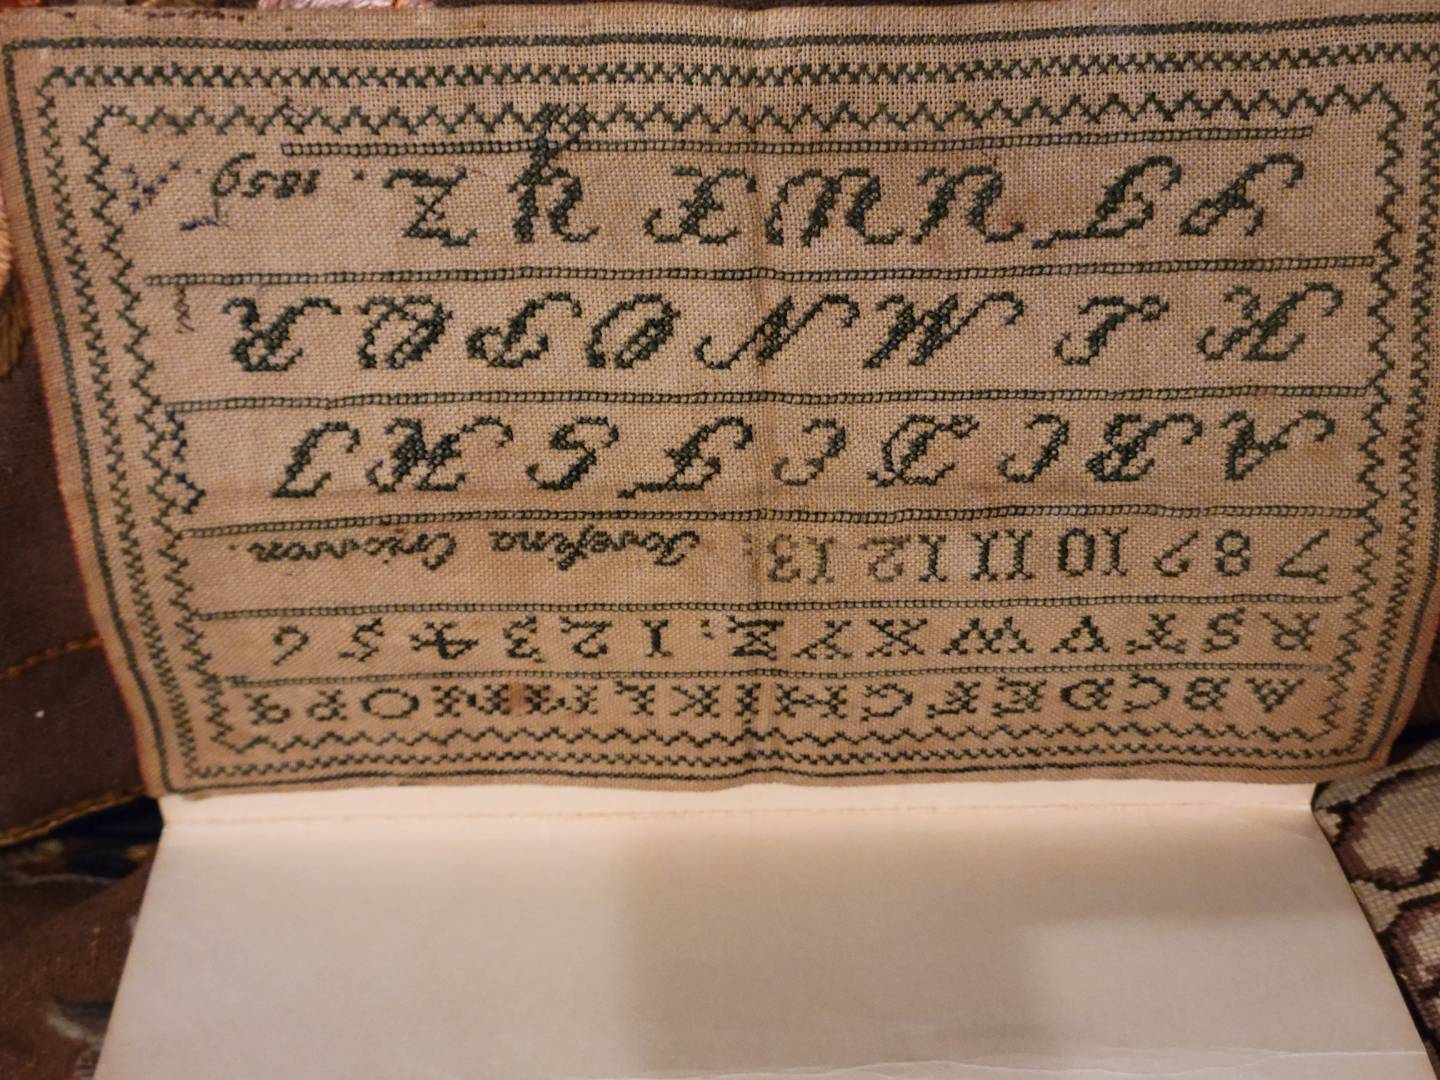 A B C D E F G H I K L M N O P Q
R S T V W X Y Z ; 1 2 3 4 5 6
7 8 9 10 11 12 13 : Josefina
A B C D E F G H I
K L M N O P Q R
S T V W X Y Z . 1859.